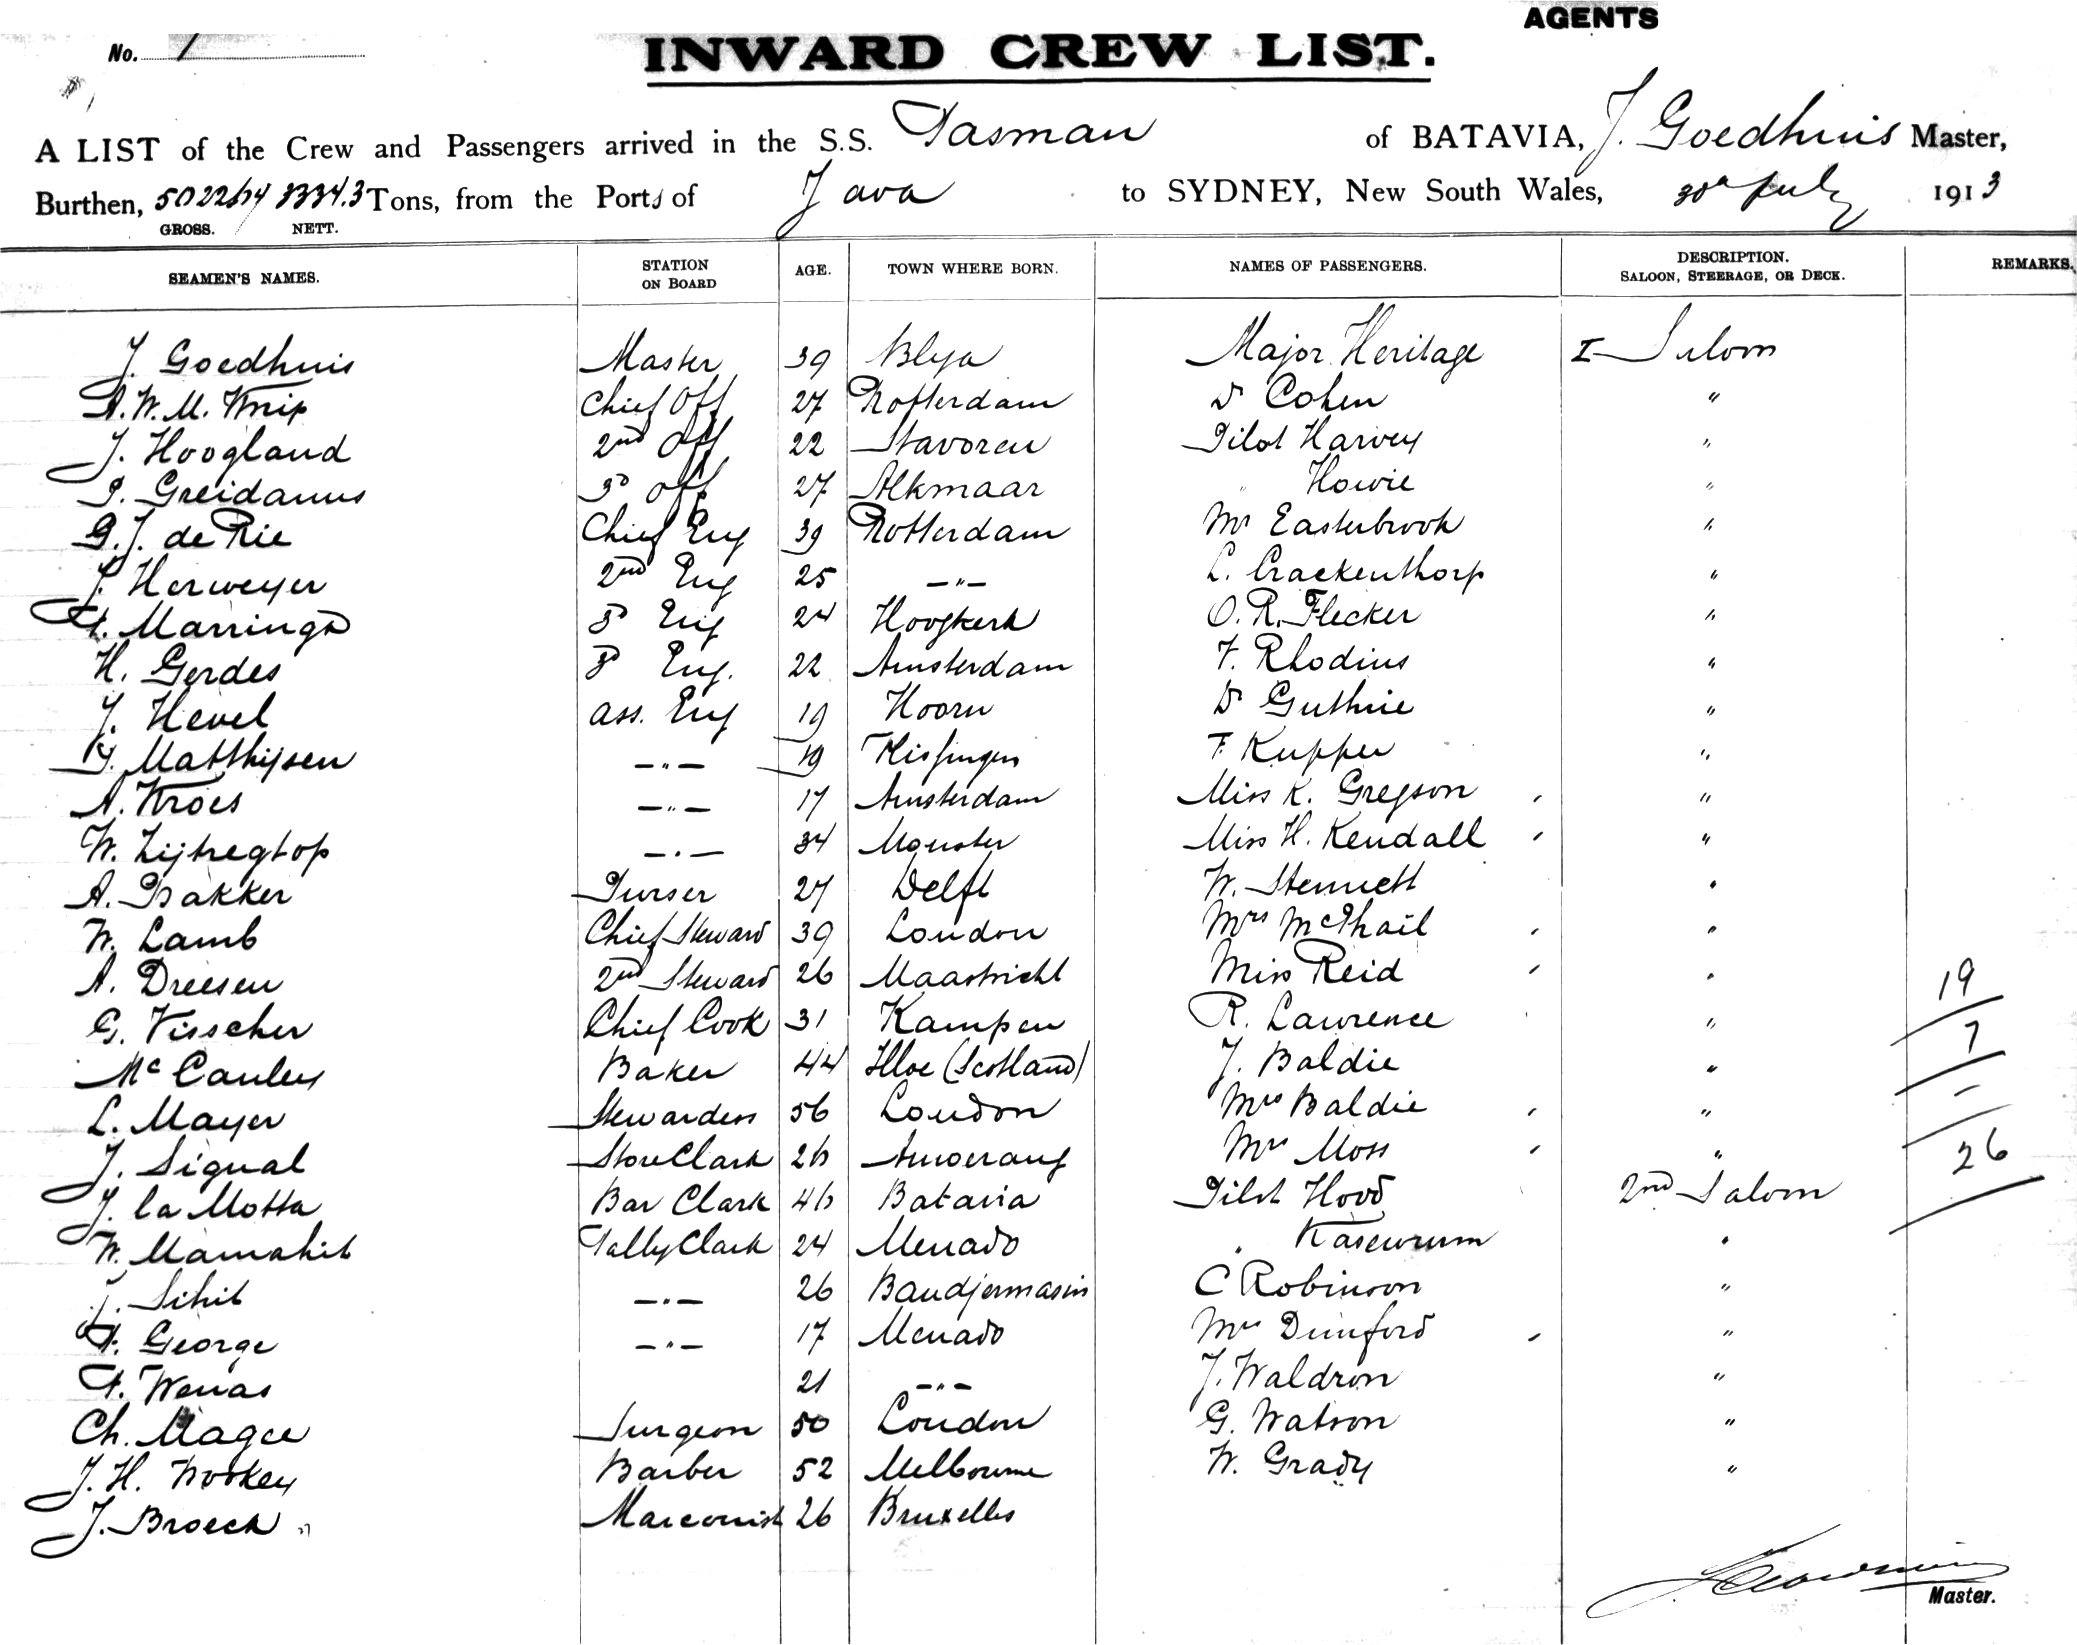 AGENTS
No. 1
INWARD CREW LIST.
A LIST of the Crew and Passengers arrived in the S.S. Tasman of BATAVIA, J. Goedhuis Master,
Burthen, 5022/74 3334.3 Tons, from the Ports of Java to SYDNEY, New South Wales, 30th July 1913
GROSS. NETT.
SEAMEN'S NAMES. STATION ON BOARD AGE. TOWN WHERE BORN. NAMES OF PASSENGERS. DESCRIPTION. SALOON, STEERAGE, OR DECK. REMARKS.
J. Goedhuis Master 39 Major Heritage I Saloon
A.W.M. Knip Chief Off 27 Rotterdam Dr Cohen "
J. Hoogland 2nd Off 22 Stavoren Pilot Harvey "
P. Greidanus 3d Off 27 Alkmaar " Howie "
G.J. de Rie Chief Eng 39 Rotterdam Mr Easterbrook "
J. Herweyer 2nd Eng 25 —"— L. Crackenthorp "
Marringa 3d Eng 24 Hoogkerk O.R. Flecker "
H. Gerdes 3d Eng. 22 Amsterdam F. Rhodius "
J. Hevel ass. Eng 19 Hoorn Dr Guthrie "
Matthijsen —"— 19 F. Kupper "
A. Kroes —"— 17 Amsterdam Miss K. Gregson "
W. Zijtregtop —"— 34 Monster Miss H. Kendall "
A. Bakker Purser 27 Delft W. Stennett "
W. Lamb Chief Steward 39 London Mrs McPhail "
A. Dreesen 2nd Steward 26 Maastricht Miss Reid " 19
G. Visscher Chief Cook 31 Kampen R. Lawrence " 7
McCauley Baker 44 (Scotland) J. Baldie " –
L. Mayer Stewardess 56 London Mrs Baldie "
J. Signal Store Clark 26 Amoerang Mrs Moss " 26
J. la Motta Bar Clark 46 Batavia Pilot Hood 2nd Saloon
W. Mamahit Tally Clark 24 Menado " "
J. Sihit —"— 26 Bandjermasin C Robinson "
F. George —"— 17 Menado Mrs Dunford "
F. Wenas 21 —"— J. Waldron "
Ch. Magee Surgeon 50 London G. Watson "
J. H. Wookey Barber 52 Melbourne W. Grady "
J. Broeck Marconist 26 Bruxelles
Master.